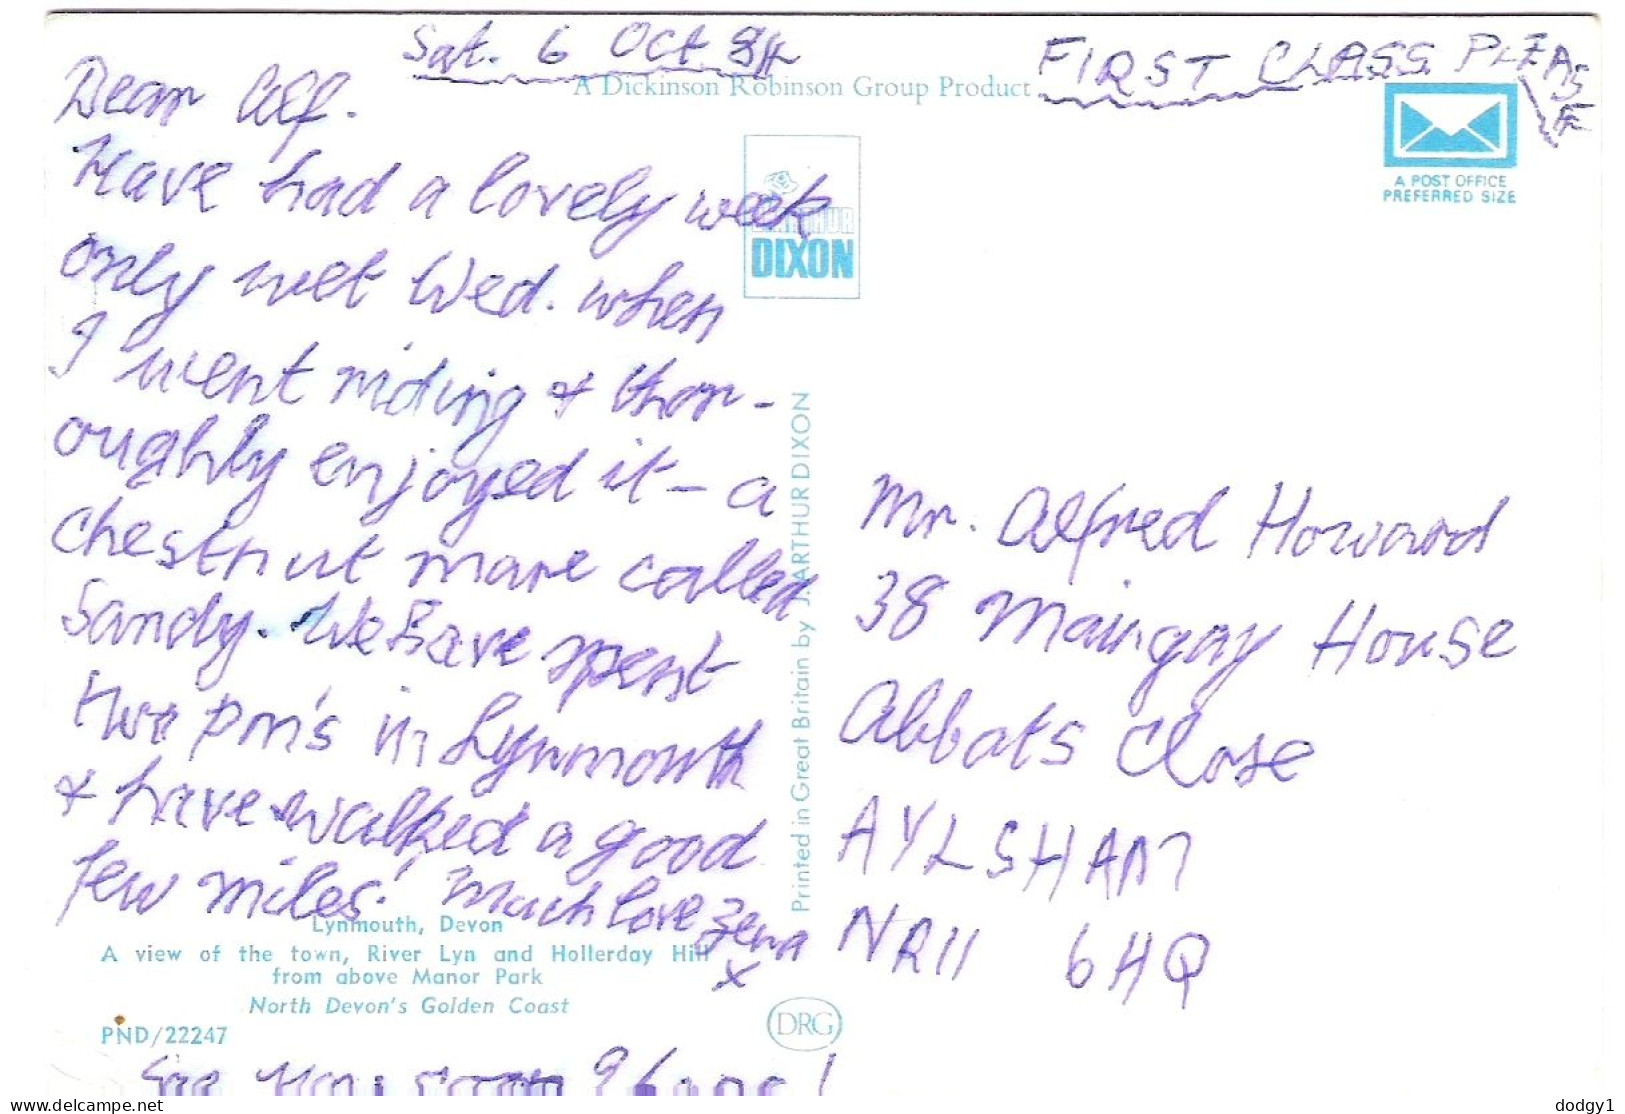 Sat. 6 Oct 84
FIRST CLASS PLEASE
A Dickinson Robinson Group Product
A POST OFFICE
PREFERRED SIZE
ARTHUR
DIXON
Dear Alf.
Have had a lovely week
only wet Wed. when
I went riding & thor-
oughly enjoyed it – a
chestnut mare called
Sandy. We have spent
two pm's in Lynmouth
& have walked a good
few miles! Much love Zena
x
Lynmouth, Devon
A view of the town, River Lyn and Hollerday Hill
from above Manor Park
North Devon's Golden Coast
PND/22247
See you soon I hope!
Printed in Great Britain by J. ARTHUR DIXON
DRG
Mr. Alfred Howard
38 Maingay House
Abbats Close
AYLSHAM
NR11 6HQ
www.delcampe.net
dodgy1